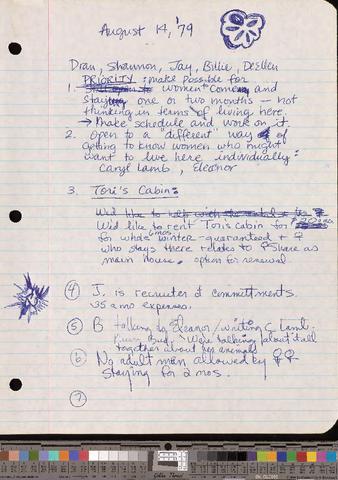 August 14, '79
Dian, Shannon, Jay, Billie, DeEllen
PRIORITY: make possible for
1. women to come and
staying one or two months - not
thinking in terms of living here.
→ Make schedule and work on it.
2. Open to a "different" way of
getting to know women who might
want to live here individually:
Caryl Lamb, Eleanor
3. Tori's Cabin:
We'd like to help with the
We'd like to rent Tori's cabin for
for whole winter - guaranteed + ♀
6 mos.
who stays there relates to
main house. option for renewal
④ J. is recruiter of committments.
expenses.
⑤ B talking to Eleanor/writing C. Lamb.
We're talking about it all
together about her animals
⑥ No adult men allowed by ♀♀
staying for 2 mos.
⑦